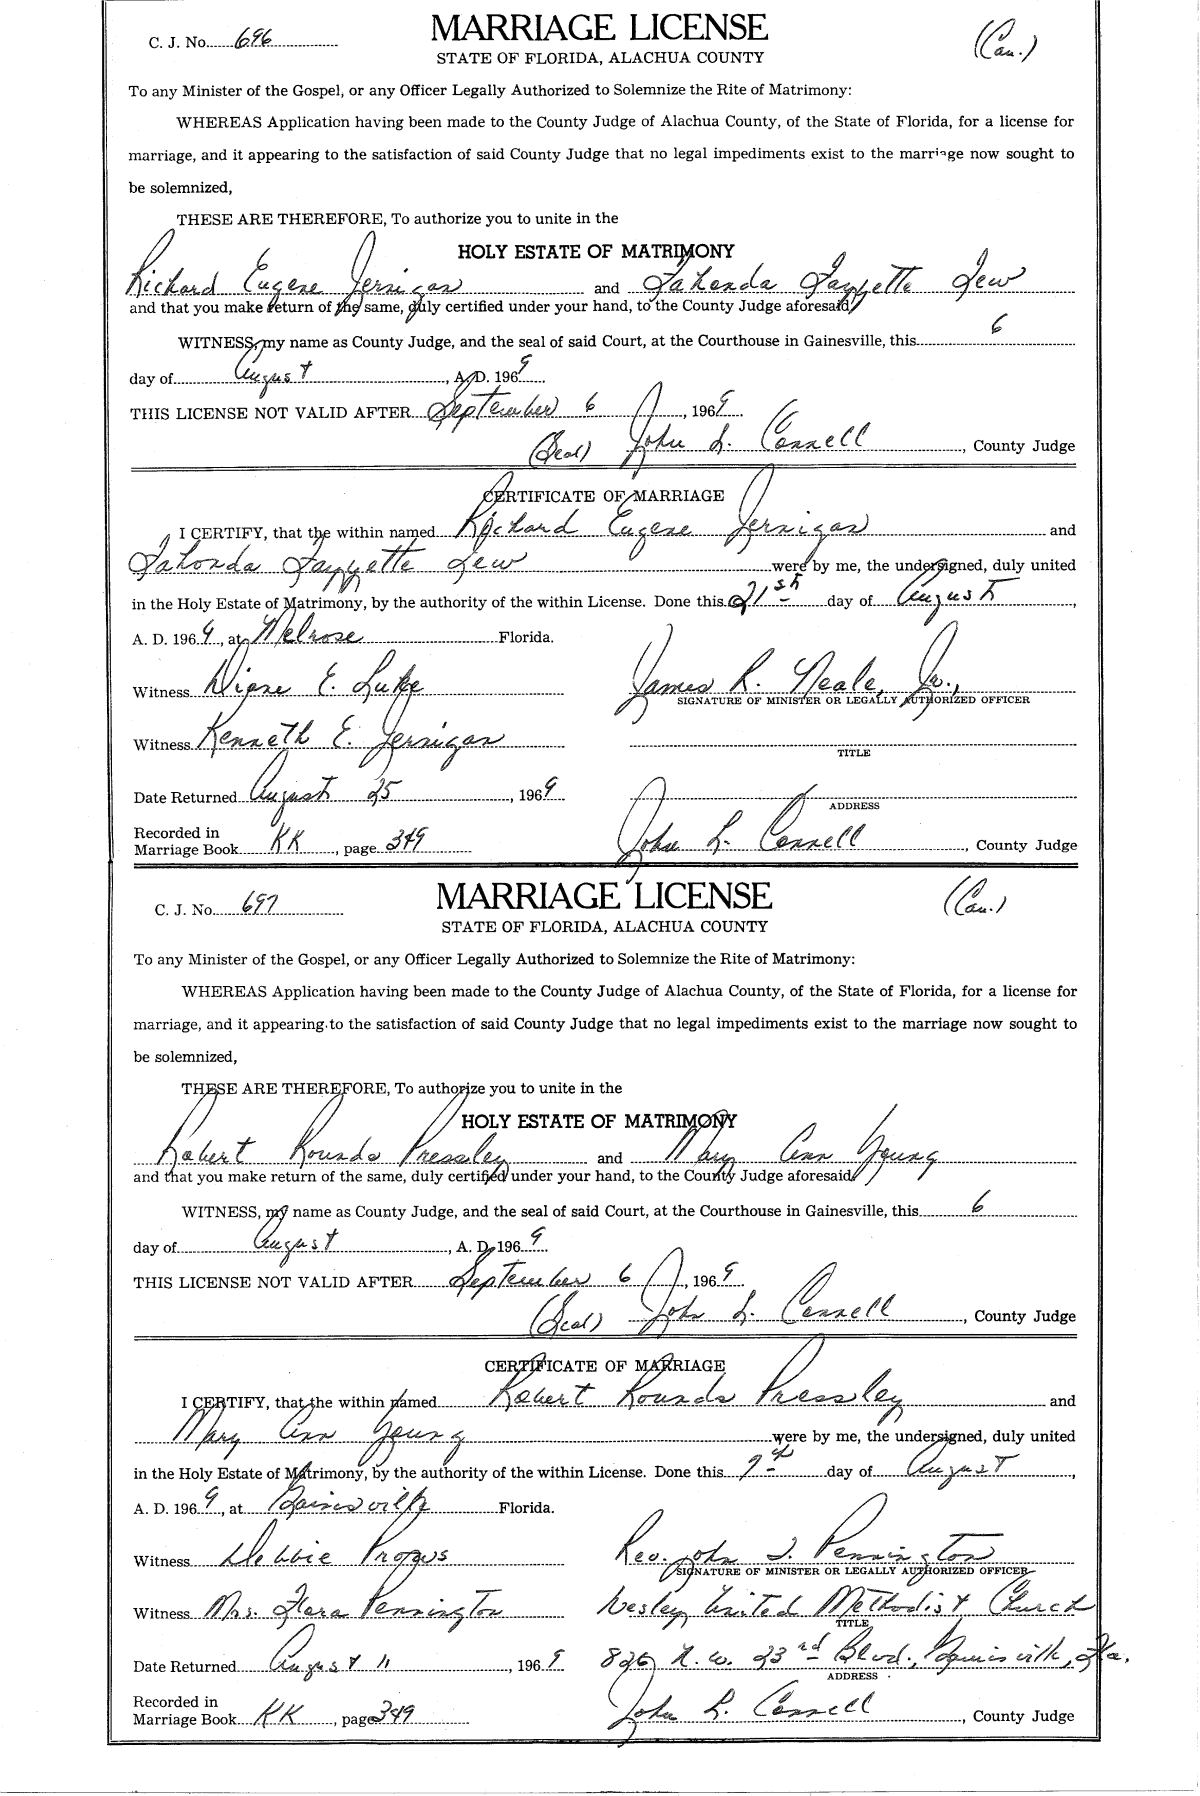 C. J. No. 696
MARRIAGE LICENSE
(Cau.)
STATE OF FLORIDA, ALACHUA COUNTY
To any Minister of the Gospel, or any Officer Legally Authorized to Solemnize the Rite of Matrimony:
WHEREAS Application having been made to the County Judge of Alachua County, of the State of Florida, for a license for
marriage, and it appearing to the satisfaction of said County Judge that no legal impediments exist to the marriage now sought to
be solemnized,
THESE ARE THEREFORE, To authorize you to unite in the
HOLY ESTATE OF MATRIMONY
Richard Eugene Jernigan and Lahonda Fayzette Lew
and that you make return of the same, duly certified under your hand, to the County Judge aforesaid,
WITNESS, my name as County Judge, and the seal of said Court, at the Courthouse in Gainesville, this 6
day of August, A. D. 1969
THIS LICENSE NOT VALID AFTER September 6, 1969
(Seal) John L. Connell, County Judge
CERTIFICATE OF MARRIAGE
I CERTIFY, that the within named Richard Eugene Jernigan and
Lahonda Fayzette Lew were by me, the undersigned, duly united
in the Holy Estate of Matrimony, by the authority of the within License. Done this 21st day of August,
A. D. 1969, at Melrose Florida.
Witness Diane E. Luke
James R. Neale, Jr.,
SIGNATURE OF MINISTER OR LEGALLY AUTHORIZED OFFICER
Witness Kenneth E. Jernigan
TITLE
Date Returned August 25, 1969
ADDRESS
Recorded in
Marriage Book KK, page 349
John L. Connell, County Judge
C. J. No. 697
MARRIAGE LICENSE
(Cau.)
STATE OF FLORIDA, ALACHUA COUNTY
To any Minister of the Gospel, or any Officer Legally Authorized to Solemnize the Rite of Matrimony:
WHEREAS Application having been made to the County Judge of Alachua County, of the State of Florida, for a license for
marriage, and it appearing to the satisfaction of said County Judge that no legal impediments exist to the marriage now sought to
be solemnized,
THESE ARE THEREFORE, To authorize you to unite in the
HOLY ESTATE OF MATRIMONY
Robert Rounds Pressley and Mary Ann Young
and that you make return of the same, duly certified under your hand, to the County Judge aforesaid,
WITNESS, my name as County Judge, and the seal of said Court, at the Courthouse in Gainesville, this 6
day of August, A. D. 1969
THIS LICENSE NOT VALID AFTER September 6, 1969
(Seal) John L. Connell, County Judge
CERTIFICATE OF MARRIAGE
I CERTIFY, that the within named Robert Rounds Pressley and
Mary Ann Young were by me, the undersigned, duly united
in the Holy Estate of Matrimony, by the authority of the within License. Done this 9th day of August,
A. D. 1969, at Gainesville Florida.
Witness Debbie Propus
Rev. John J. Pennington
SIGNATURE OF MINISTER OR LEGALLY AUTHORIZED OFFICER
Witness Mrs. Flora Pennington
Wesley United Methodist Church
TITLE
Date Returned August 11, 1969
826 N. W. 23rd Blvd., Gainesville, Fla.
ADDRESS
Recorded in
Marriage Book KK, page 349
John L. Connell, County Judge